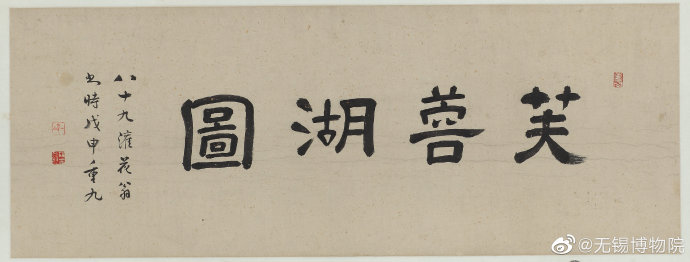 芙蓉湖圖
八十九灌花翁
书時戊申重九
@无锡博物院